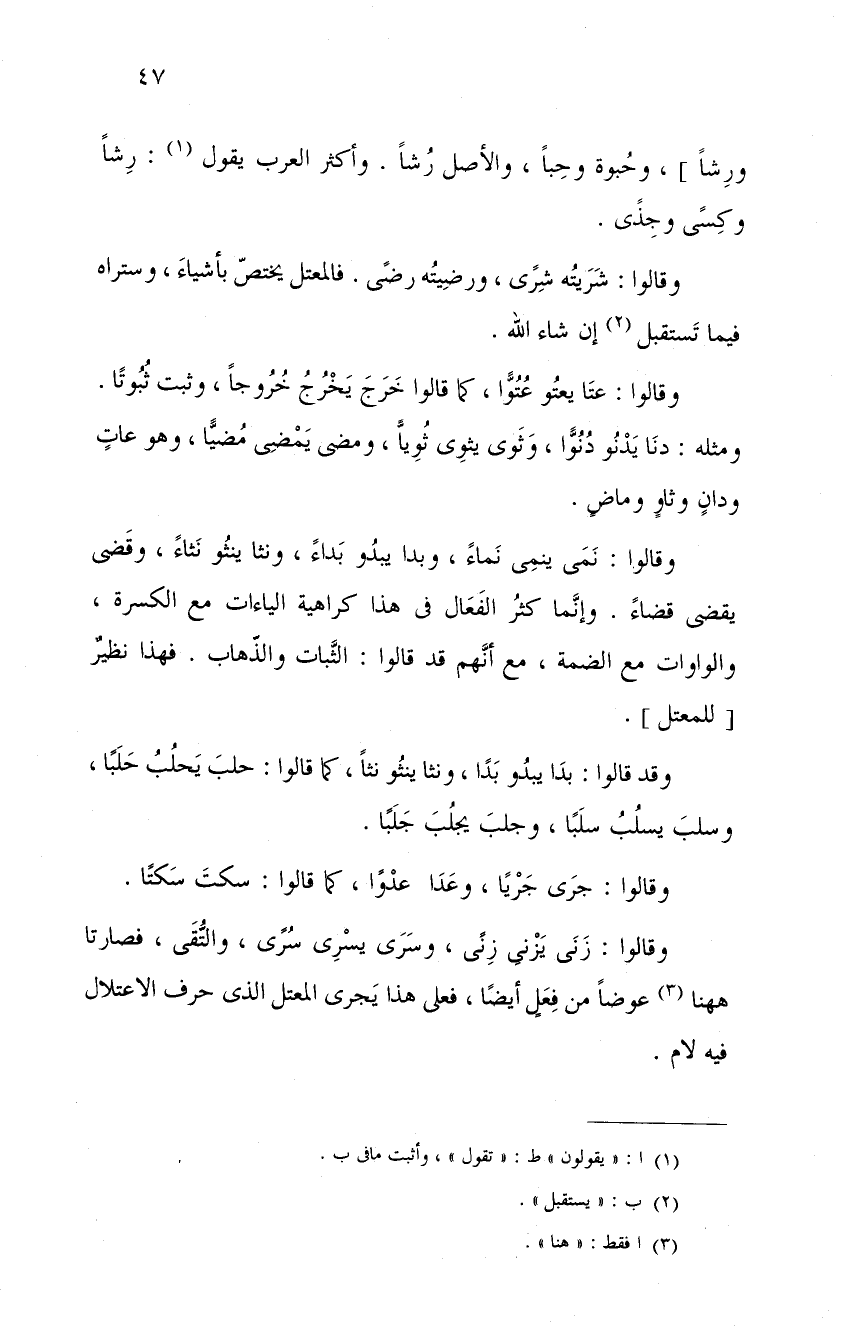 ٤٧
ورِشاً ] ، وحُبوة وحِباً ، والأصل رُشاً . وأكثر العرب يقول (١) : رِشاً
وكِسًى وجِذًى .
وقالوا : شَرَيتُه شِرًى ، ورضيِتُه رضًى . فالمعتل يختصّ بأشياءَ ، وستراه
فيما تَستقبل (٢) إن شاء الله .
وقالوا : عتَا يعتُو عُتُوًّا ، كما قالوا خَرَجَ يَخْرُجُ خُرُوجاً ، وثبت ثُبُوتًا .
ومثله : دنَا يَدْنُو دُنُوًّا ، وَثَوى يثوِى ثُوِياًّ ، ومضى يَمْضِى مُضيًّا ، وهو عاتٍ
ودانٍ وثاوٍ وماضٍ .
وقالوا : نَمَى ينمِى نَماءً ، وبدا يبدُو بَداءً ، ونثا ينثُو نَثاءً ، وقَضى
يقضى قضاءً . وإنَّما كثرُ الفَعَال فى هذا كراهية الياءات مع الكسرة ،
والواوات مع الضمة ، مع أنَّهم قد قالوا : الثَّبات والذّهاب . فهذا نظيرٌ
[ للمعتل ] .
وقد قالوا : بدَا يبدُو بَدًا ، ونثا ينثُو نثاً ، كما قالوا : حلبَ يَحلُبُ حَلَبًا ،
وسلبَ يسلُبُ سلَبًا ، وجلبَ يجلُبَ جَلَبًا .
وقالوا : جرَى جَرْيًا ، وعَدَا عدْوًا ، كما قالوا : سكتَ سَكتًا .
وقالوا : زَنَى يَزْنيِ زِنًى ، وسَرَى يسْرِى سُرًى ، والتُّقَى ، فصارتا
ههنا (٣) عوضاً من فِعَلٍ أيضًا ، فعلى هذا يَجرى المعتل الذى حرف الاعتلال
فيه لام .
(١) ا : « يقولون » ط : « تقول » ، وأثبت مافى ب .
(٢) ب : « يستقبل » .
(٣) ا فقط : « هنا » .